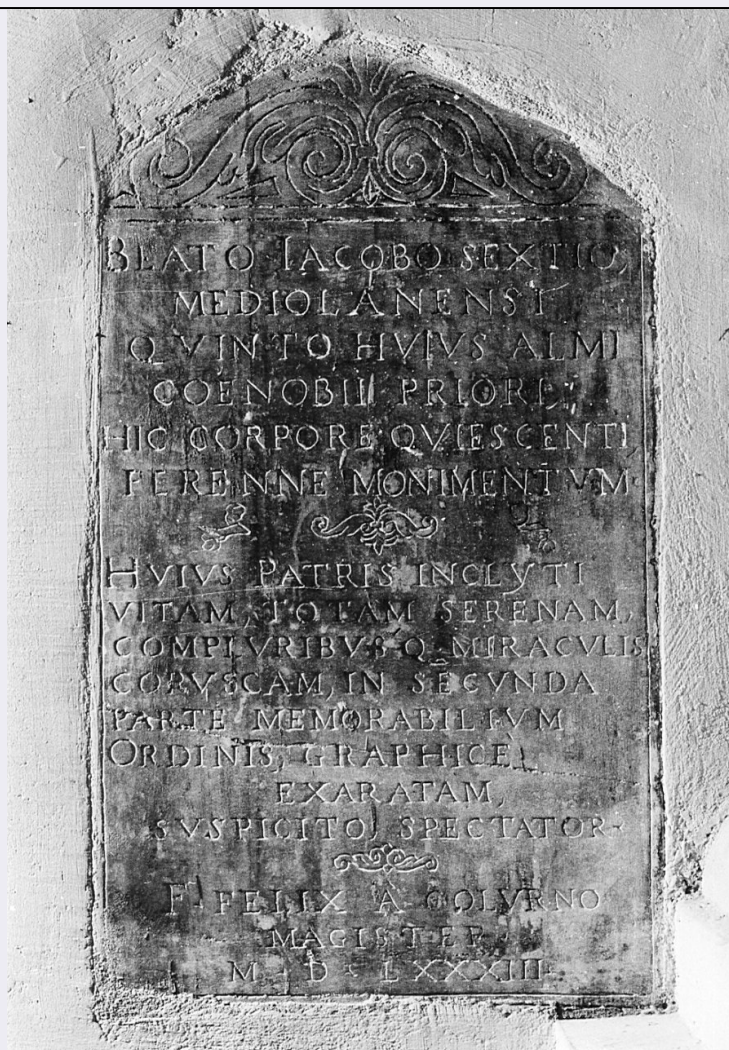 BEATO IACOBO SEXTIO,
MEDIOLANENSI
QVINTO HVIVS ALMI
COENOBII PRIORI,
HIC CORPORE QVIESCENTI,
PERENNE MONIMENTVM
HVIVS PATRIS INCLYTI
VITAM, TOTAM SERENAM,
COMPLVRIBVSQ MIRACVLIS
CORVSCAM, IN SECVNDA
PARTE MEMORABILIVM
ORDINIS, GRAPHICE
EXARATAM,
SVSPICITO SPECTATOR
F. FELIX A COLVRNO
MAGISTER
M D LXXXIII